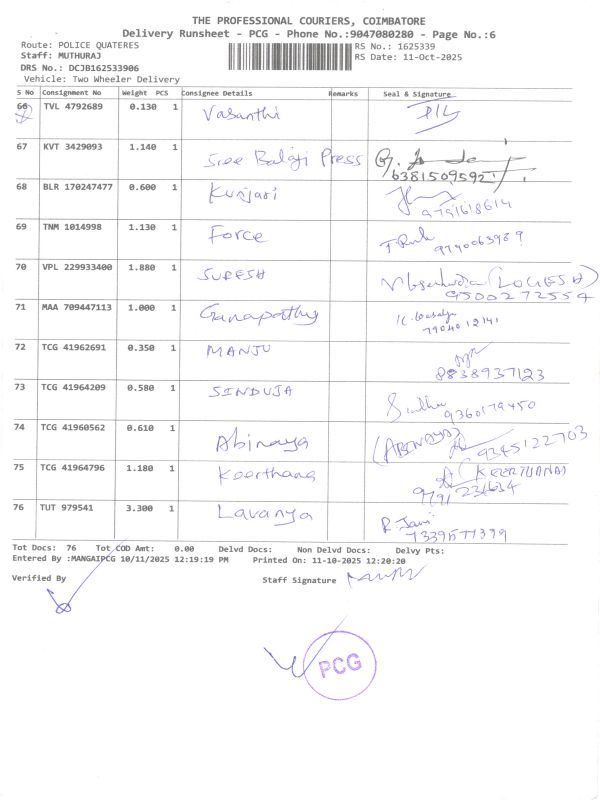 THE PROFESSIONAL COURIERS, COIMBATORE
Delivery Runsheet - PCG - Phone No.:9047080280 - Page No.:6
Route: POLICE QUATERES RS No.: 1625339
Staff: MUTHURAJ RS Date: 11-Oct-2025
DRS No.: DCJB162533906
Vehicle: Two Wheeler Delivery
S No Consignment No Weight PCS Consignee Details Remarks Seal & Signature
66 TVL 4792689 0.130 1 Vasanthi D/L
67 KVT 3429093 1.140 1 Sree Balaji Press
6381509592
68 BLR 170247477 0.600 1 Kunjari
9791618614
69 TNM 1014998 1.130 1 Force
70 VPL 229933400 1.880 1 SURESH (LOGESH)
9500272554
71 MAA 709447113 1.000 1 Ganapathy
7904012141
72 TCG 41962691 0.350 1 MANJU
8838937123
73 TCG 41964209 0.580 1 SINDUJA Sindhu
9360179450
74 TCG 41960562 0.610 1 Abinaya (ABINAYA)
9345122703
75 TCG 41964796 1.180 1 Keerthana (KEERTHANA)
9791 231634
76 TUT 979541 3.300 1 Lavanya
7339577399
Tot Docs: 76 Tot COD Amt: 0.00 Delvd Docs: Non Delvd Docs: Delvy Pts:
Entered By :MANGAIPCG 10/11/2025 12:19:19 PM Printed On: 11-10-2025 12:20:20
Verified By Staff Signature
PCG